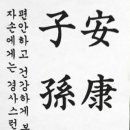 安康
子孫
편안하고 건강하게
자손에게는 경사스런